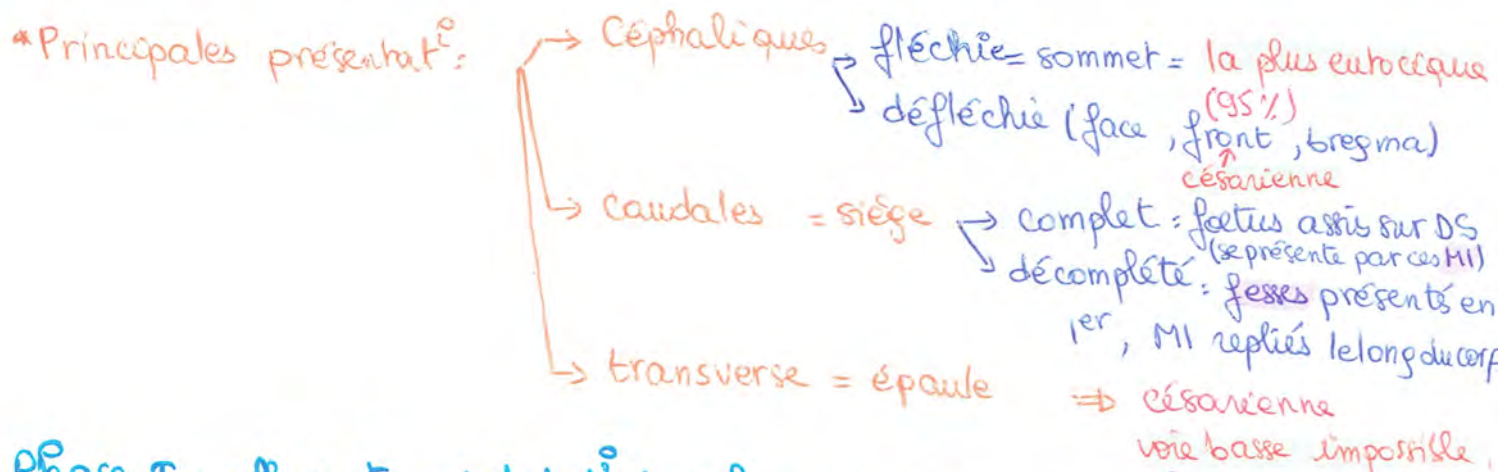 *Principales présentat° :
→ Céphaliques → fléchie = sommet = la plus eutocique
(95%)
→ défléchie (face, front, bregma)
↑
césarienne
→ caudales = siège → complet = fœtus assis sur DS
(se présente par ces MI)
→ décomplété : fesses présentés en
1er, MI repliés le long du corp
→ transverse = épaule ⇒ césarienne
voie basse impossible